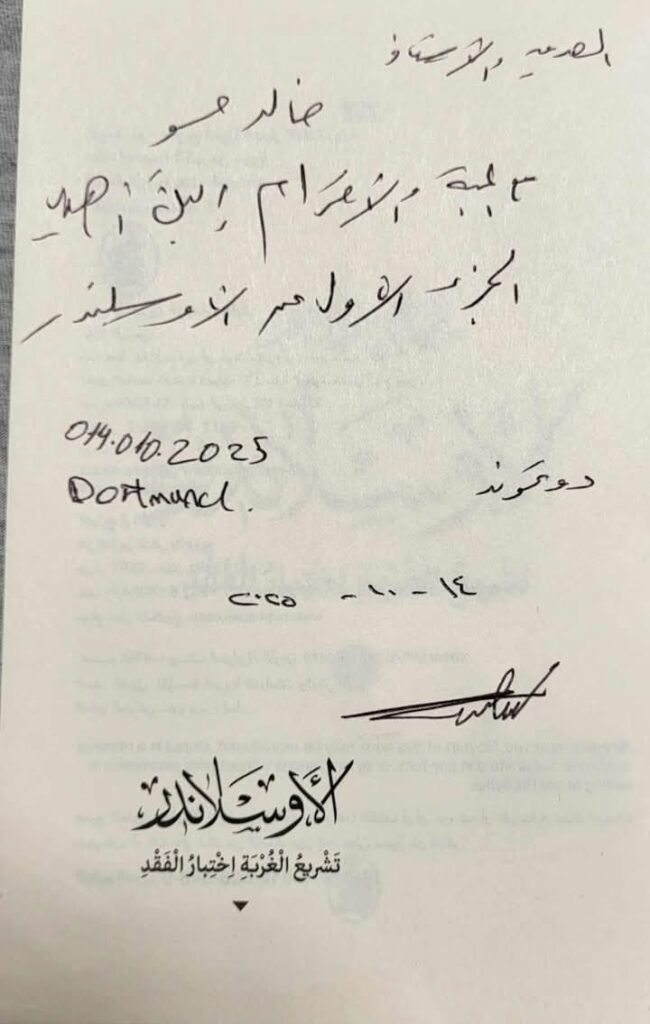 الصديق والأستاذ
خالد حسو
مع المحبة والاحترام إليك أهدي
الجزء الأول من الأوسلندر
014.010.2025
Dortmund.
دورتموند
١٤ - ١٠ - ٢٠٢٥
الأَوسْلَانْدَر
تَشْرِيعُ الْغُرْبَةِ اِخْتِبَارُ الْفَقْدِ